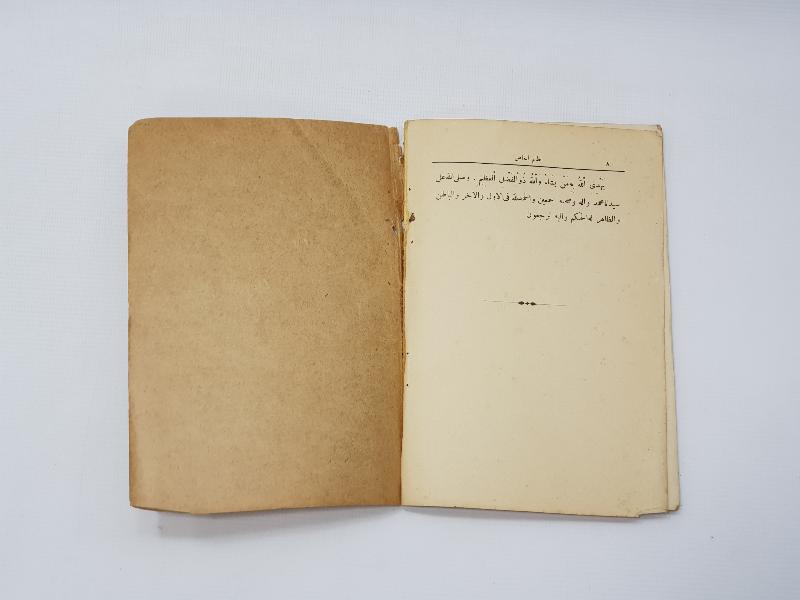 ٨
يَهْدِى ٱللّٰهُ مَنْ يَشَاءُ وَٱللّٰهُ ذُو ٱلْفَضْلِ ٱلْعَظِيمِ . وصلى الله على
سيدنا محمد وآله وصحبه اجمعين والحمد لله فى الاول والآخر والباطن
والظاهر له الحكم واليه ترجعون